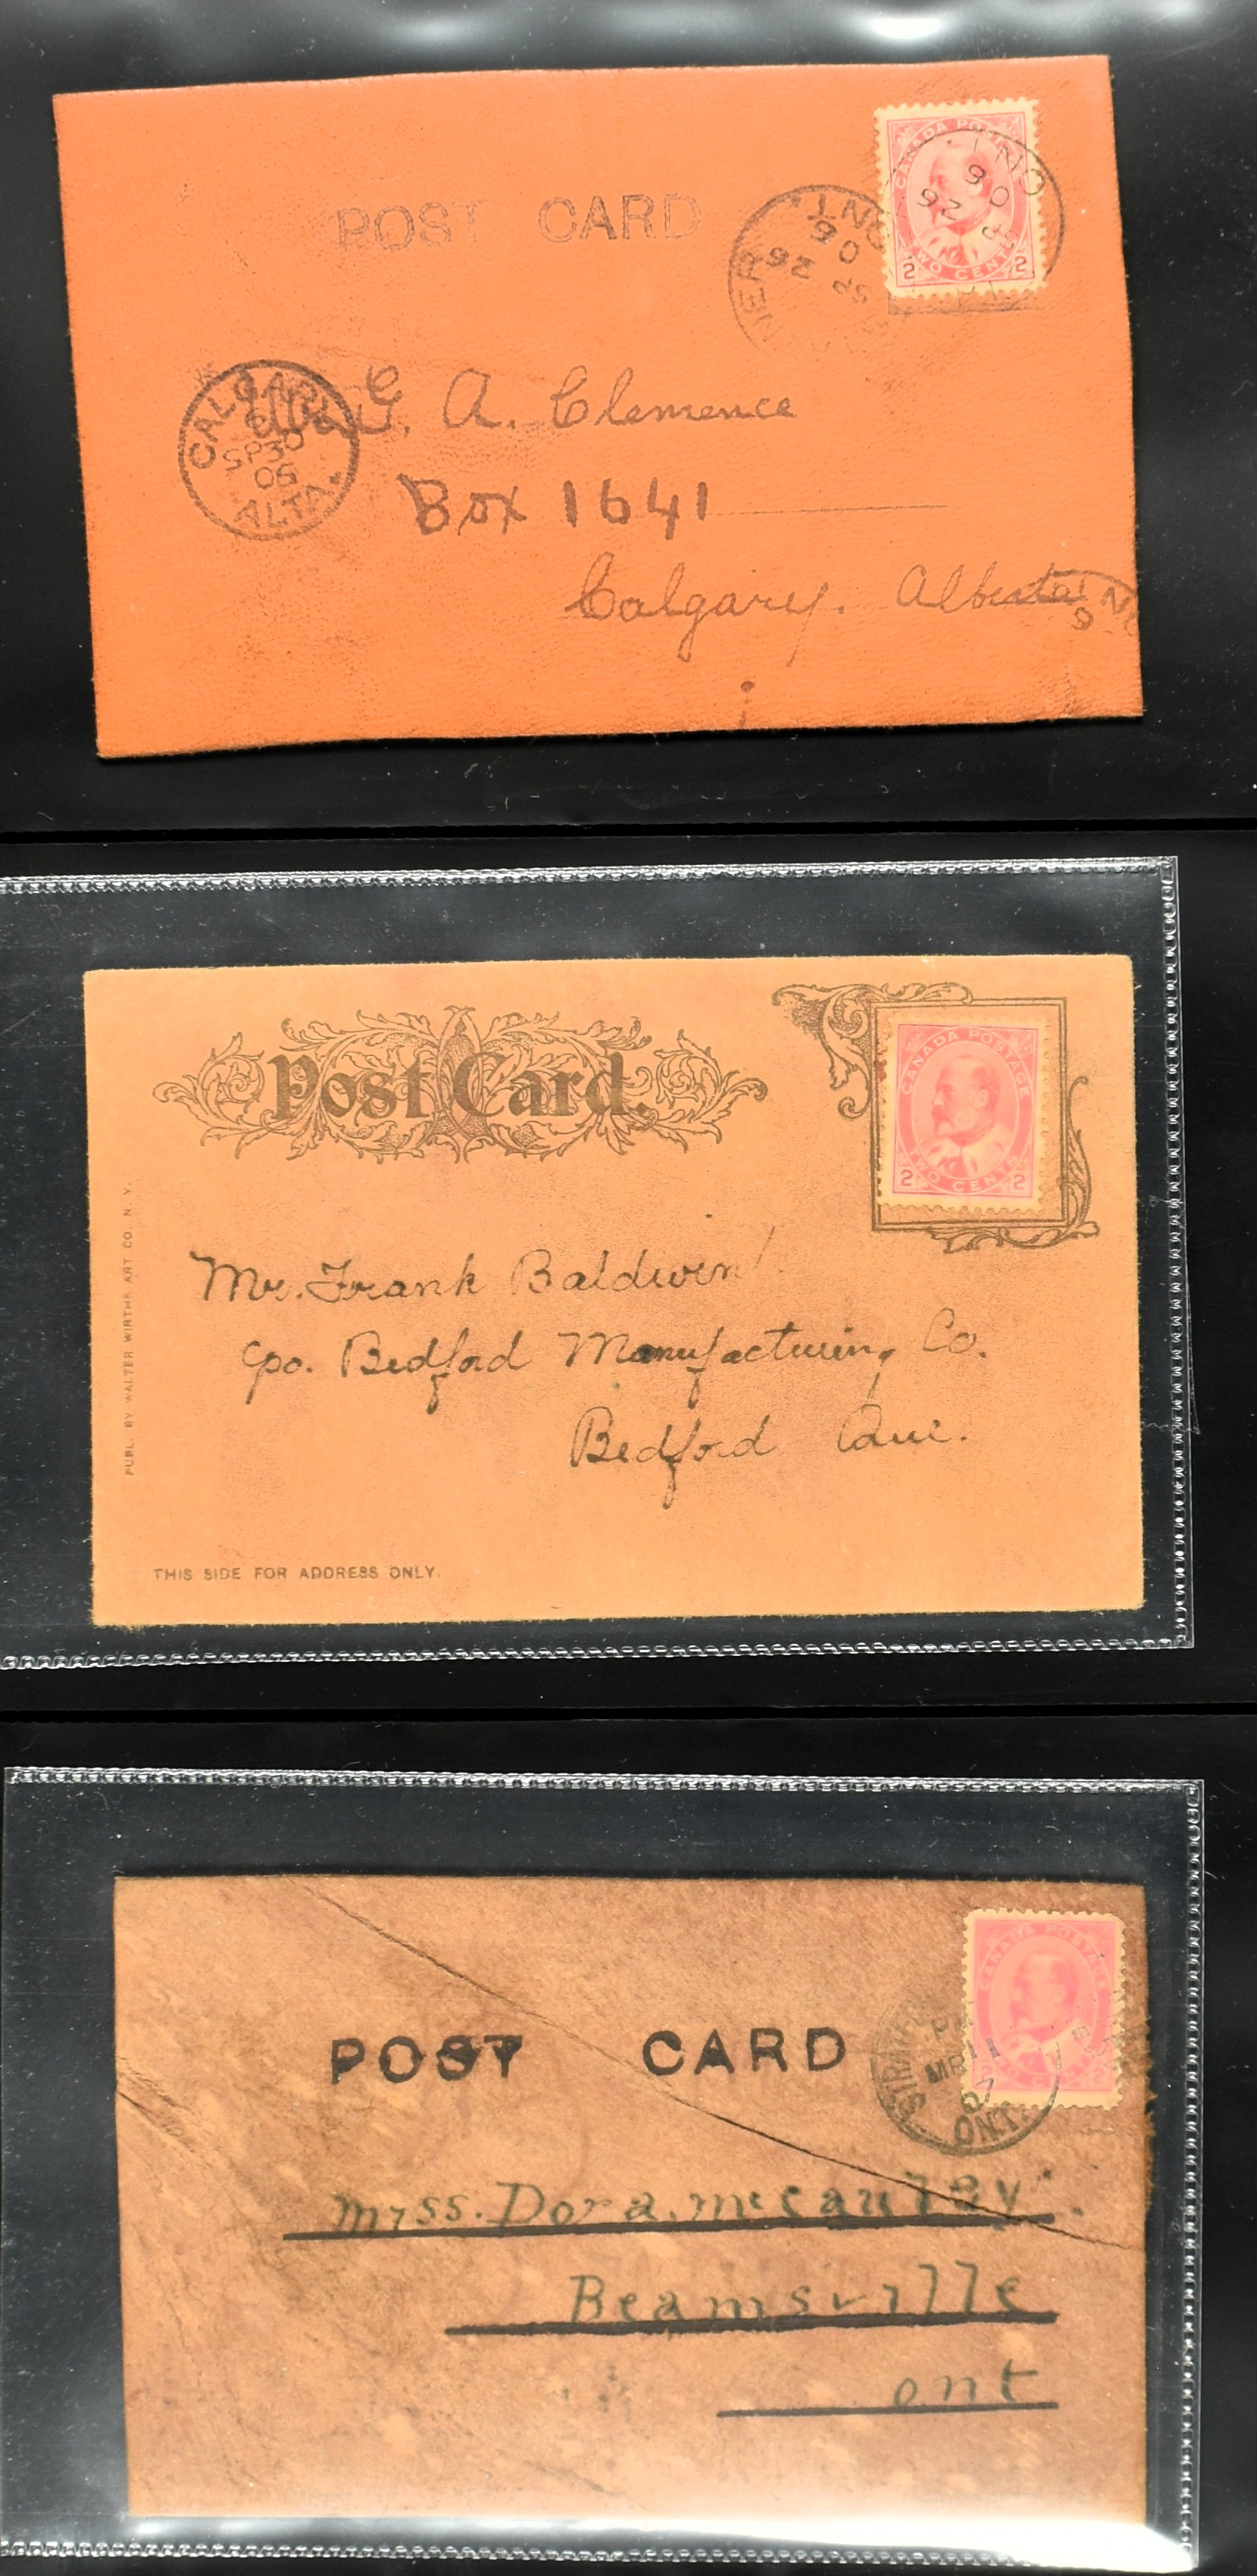 POST CARD
CANADA POSTAGE
TWO CENTS
2 2
ONT.
SP 26
06
ONT.
SP 26
06
CALGARY
SP 30
06
ALTA.
G. A. Clemence
Box 1641
Calgary. Alberta
Post Card.
CANADA POSTAGE
TWO CENTS
2 2
PUBL. BY WALTER WIRTHS ART CO. N.Y.
Mr. Frank Baldwin
c/o. Bedford Manufacturing Co.
Bedford Que.
THIS SIDE FOR ADDRESS ONLY.
POST CARD
CANADA POSTAGE
2
PM
MR 11
07
ONT.
Miss. Dora. McCauley.
Beamsville
ont